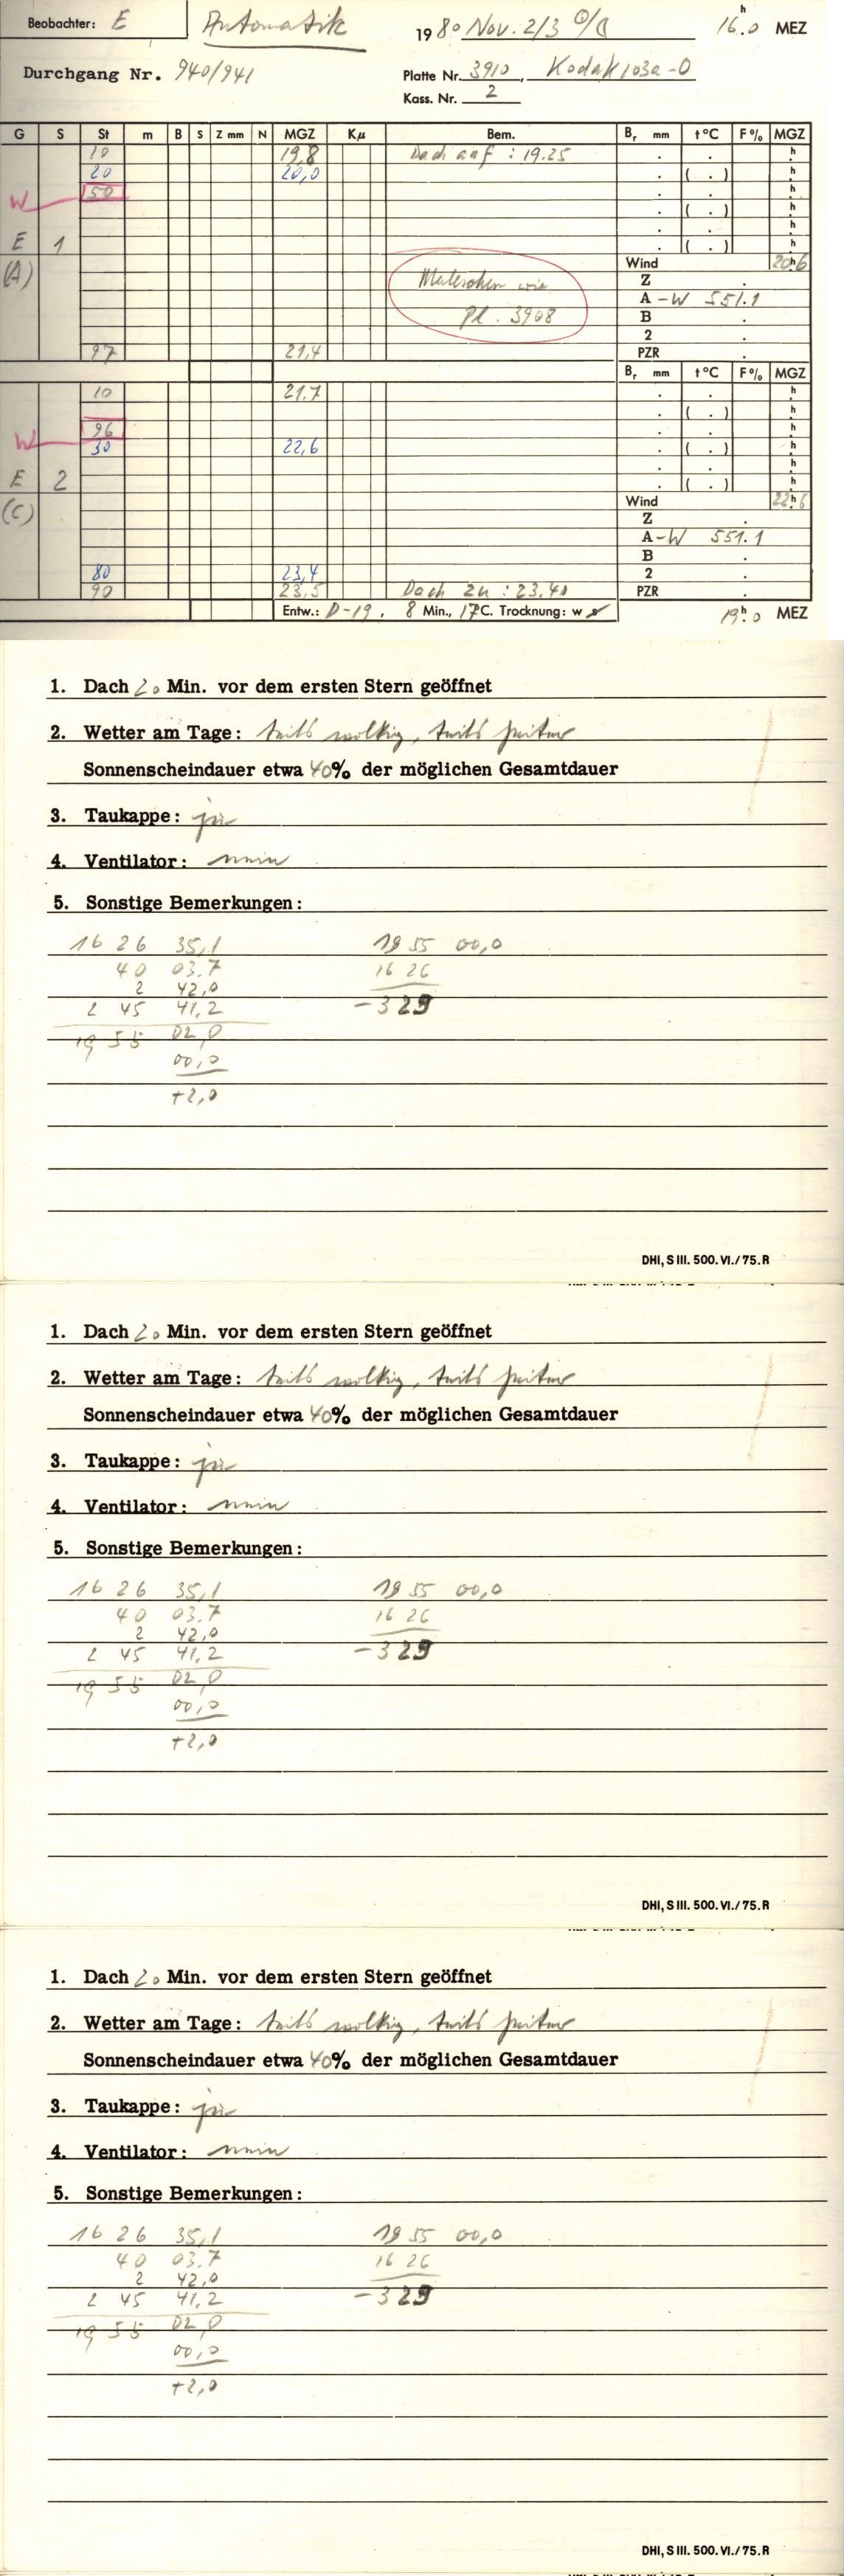 Beobachter: E Automatik 1980 Nov. 2/3 16h.0 MEZ
Durchgang Nr. 940/941 Platte Nr. 3910, Kodak 103a-O
Kass. Nr. 2
G S St m B S Z mm N MGZ Kμ Bem. Br mm t°C F% MGZ
10 19,8 Dach auf : 19.25 . . h
20 20,0 . ( . ) h
W 50 . . h
. ( . ) h
. . h
E 1 . ( . ) h
(A) Wind 20h.6
Z .
A - W 551.1
wie
Pl. 3908
B .
2
97 21,4 PZR .
Br mm t°C F% MGZ
10 21.7 . . h
. ( . ) h
96 . . h
W 30 22,6 . ( . ) h
. . h
E 2 . ( . ) h
(C) Wind 22h.6
Z .
A - W 551.1
B .
80 23,4 2
90 23,5 Dach zu : 23.40 PZR .
Entw.: D-19, 8 Min., 17°C. Trocknung: w 19h.0 MEZ
1. Dach 20 Min. vor dem ersten Stern geöffnet
2. Wetter am Tage: teils wolkig, teils heiter
Sonnenscheindauer etwa 40% der möglichen Gesamtdauer
3. Taukappe: ja
4. Ventilator: nein
5. Sonstige Bemerkungen:
16 26 35,1 19 55 00,0
40 03.7 16 26
2 42,0
2 45 41,2 -329
19 55 02,0
00,0
+2,0
DHI, S III. 500. VI./75. R
1. Dach 20 Min. vor dem ersten Stern geöffnet
2. Wetter am Tage: teils wolkig, teils heiter
Sonnenscheindauer etwa 40% der möglichen Gesamtdauer
3. Taukappe: ja
4. Ventilator: nein
5. Sonstige Bemerkungen:
16 26 35,1 19 55 00,0
40 03.7 16 26
2 42,0
2 45 41,2 -329
19 55 02,0
00,0
+2,0
DHI, S III. 500. VI./75. R
1. Dach 20 Min. vor dem ersten Stern geöffnet
2. Wetter am Tage: teils wolkig, teils heiter
Sonnenscheindauer etwa 40% der möglichen Gesamtdauer
3. Taukappe: ja
4. Ventilator: nein
5. Sonstige Bemerkungen:
16 26 35,1 19 55 00,0
40 03.7 16 26
2 42,0
2 45 41,2 -329
19 55 02,0
00,0
+2,0
DHI, S III. 500. VI./75. R